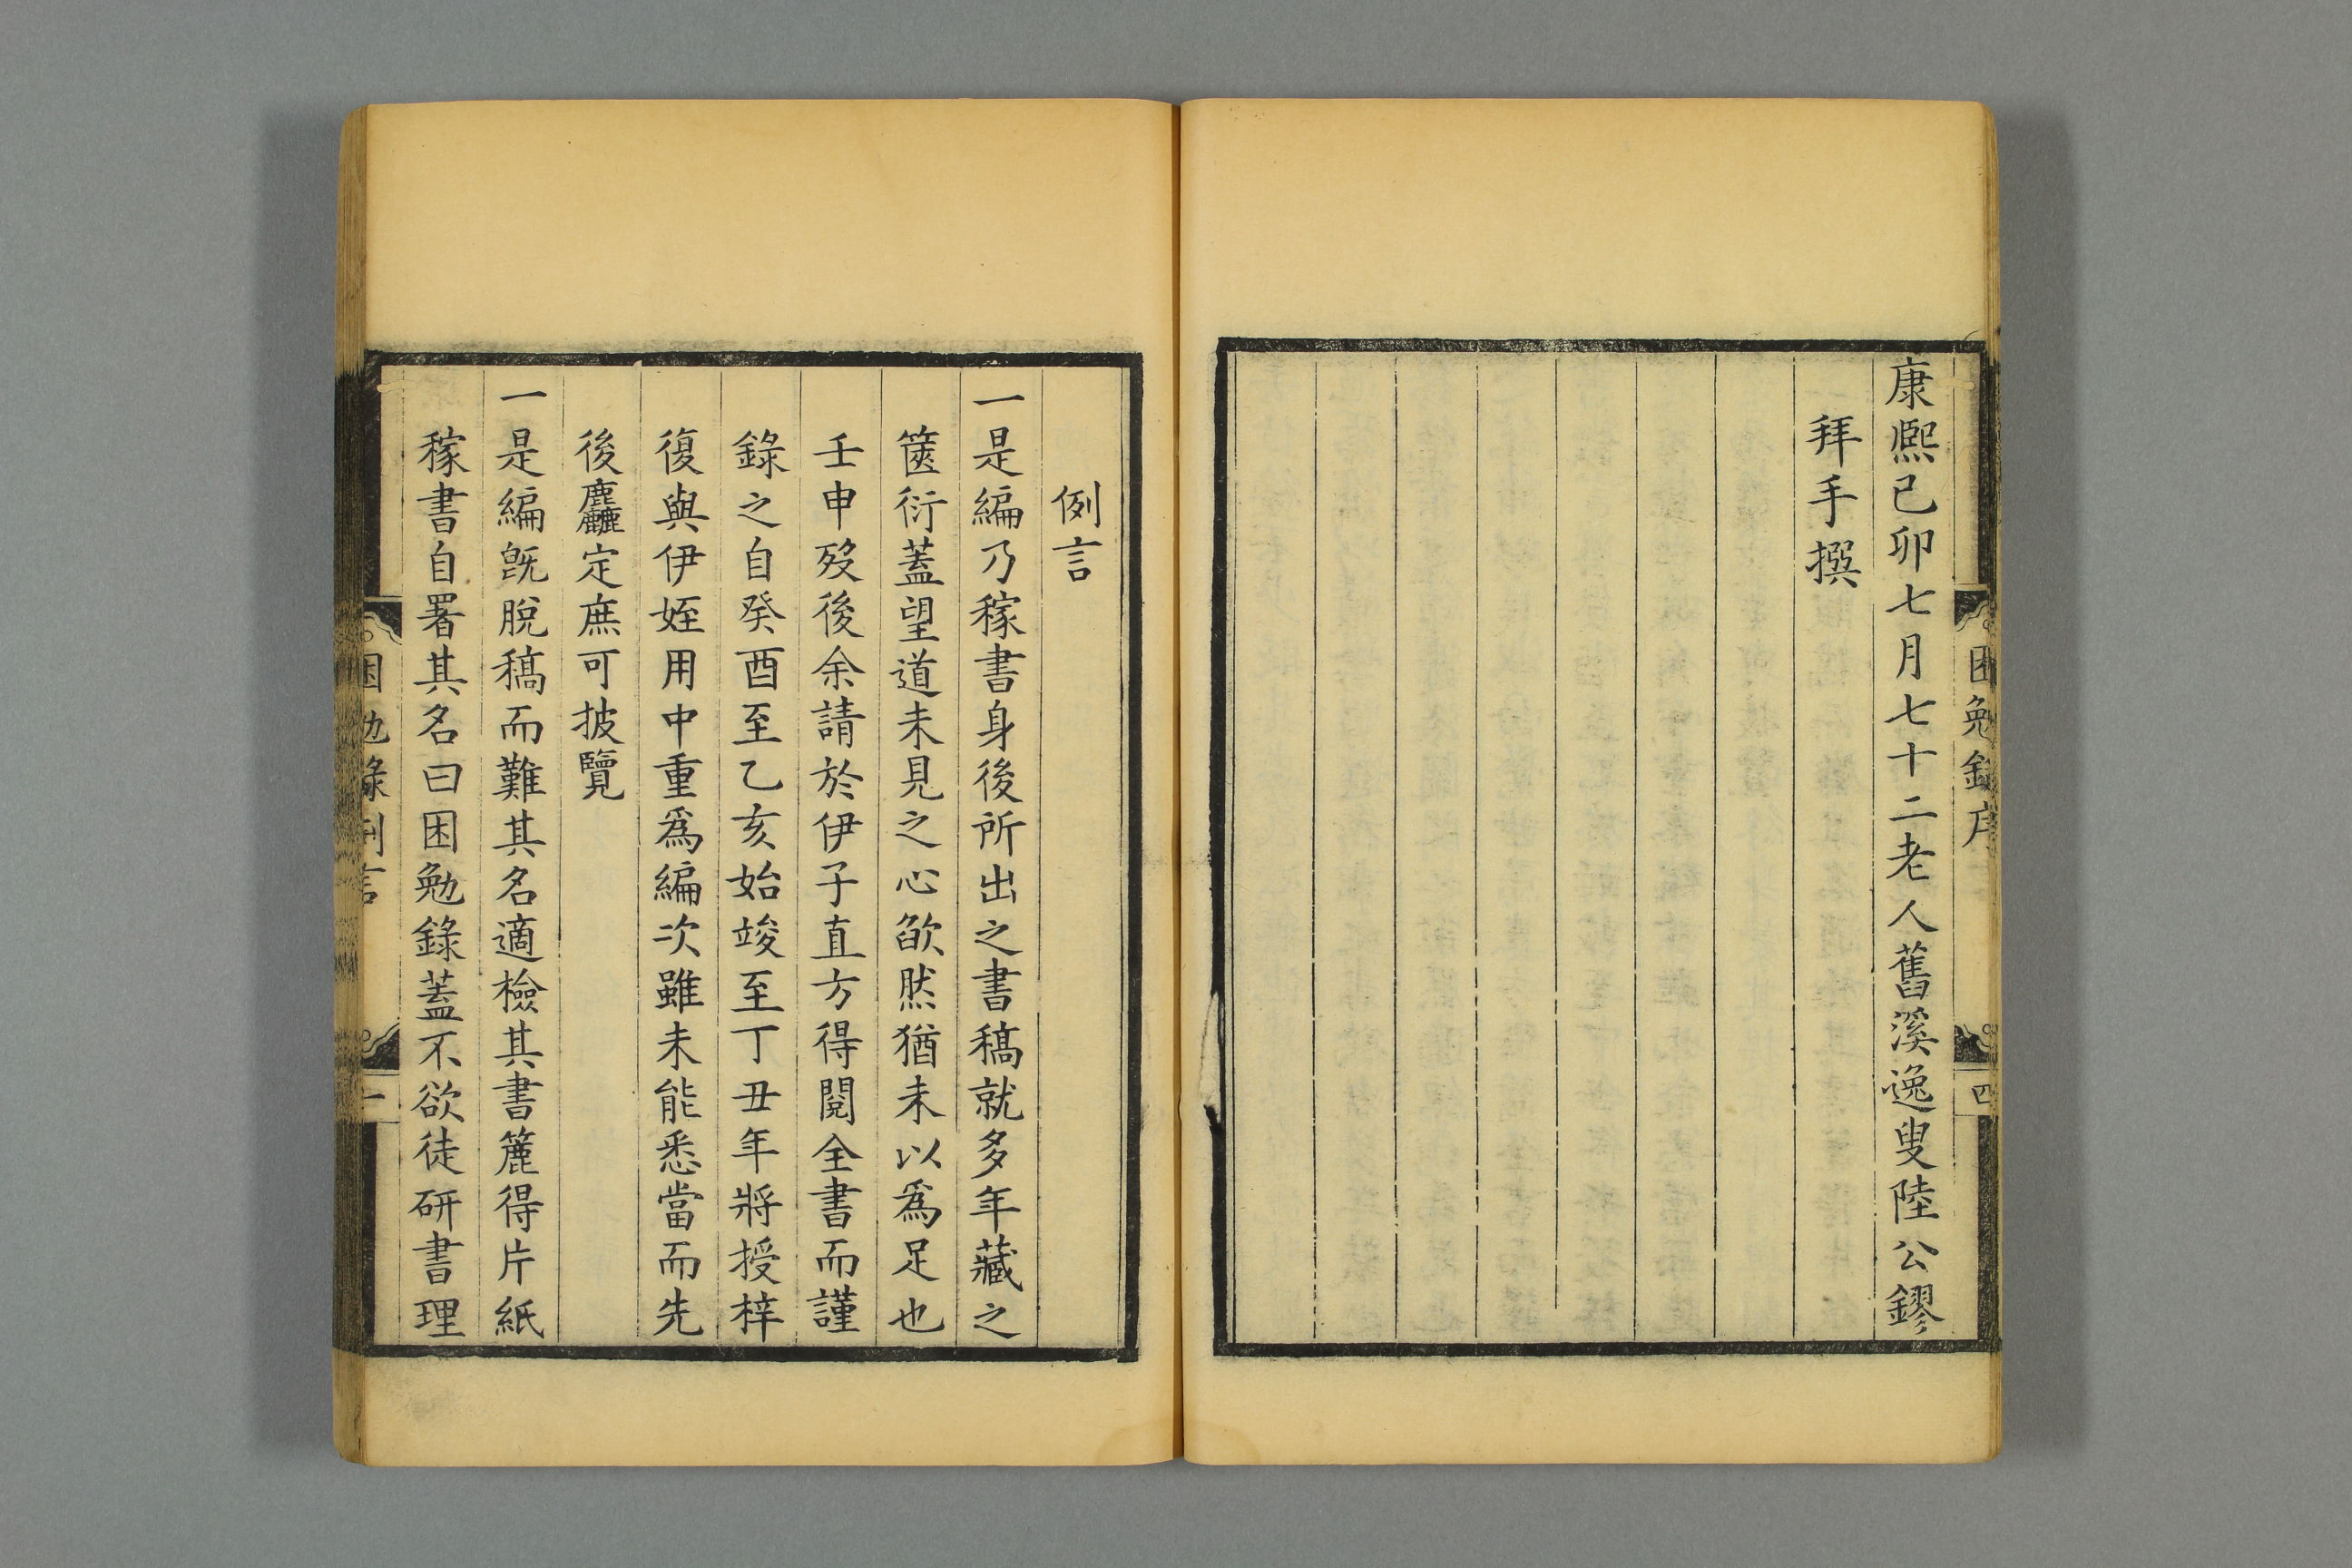 困勉錄序
四
康熙己卯七月七十二老人舊溪逸叟陸公鏐
拜手撰
例言
一是編乃稼書身後所出之書稿就多年藏之
篋衍蓋望道未見之心欿然猶未以為足也
壬申歿後余請於伊子直方得閱全書而謹
錄之自癸酉至乙亥始竣至丁丑年將授梓
復與伊姪用中重為編次雖未能悉當而先
後麤定庶可披覽
一是編旣脫稿而難其名適檢其書簏得片紙
稼書自署其名曰困勉錄蓋不欲徒研書理
困勉錄例言
一